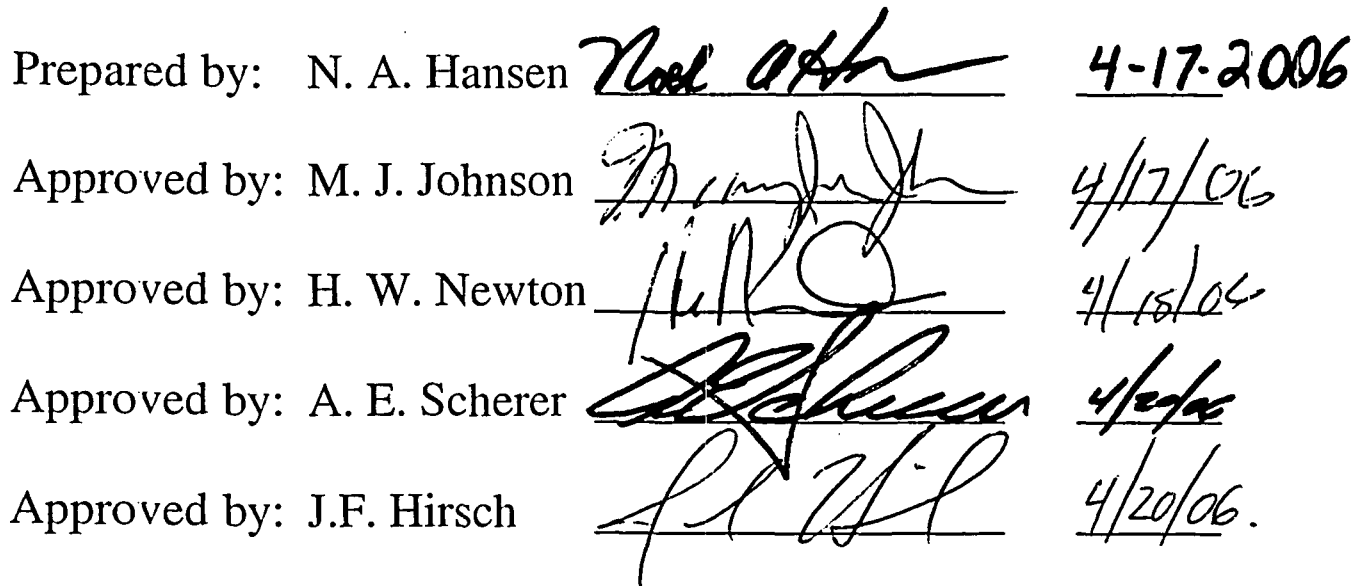 Prepared by: N. A. Hansen 4-17-2006
Approved by: M. J. Johnson 4/17/06
Approved by: H. W. Newton 4/18/06
Approved by: A. E. Scherer 4/20/06
Approved by: J.F. Hirsch 4/20/06.